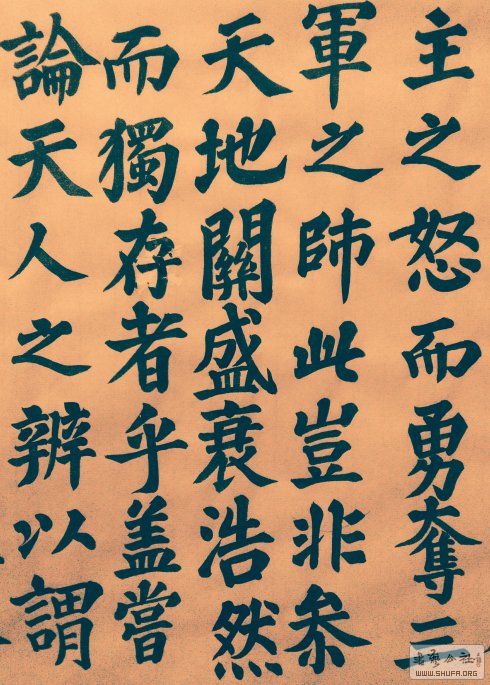 主之怒而勇奪三
軍之師此豈非参
天地關盛衰浩然
而獨存者乎盖嘗
論天人之辨以謂
WWW.SHUFA.ORG